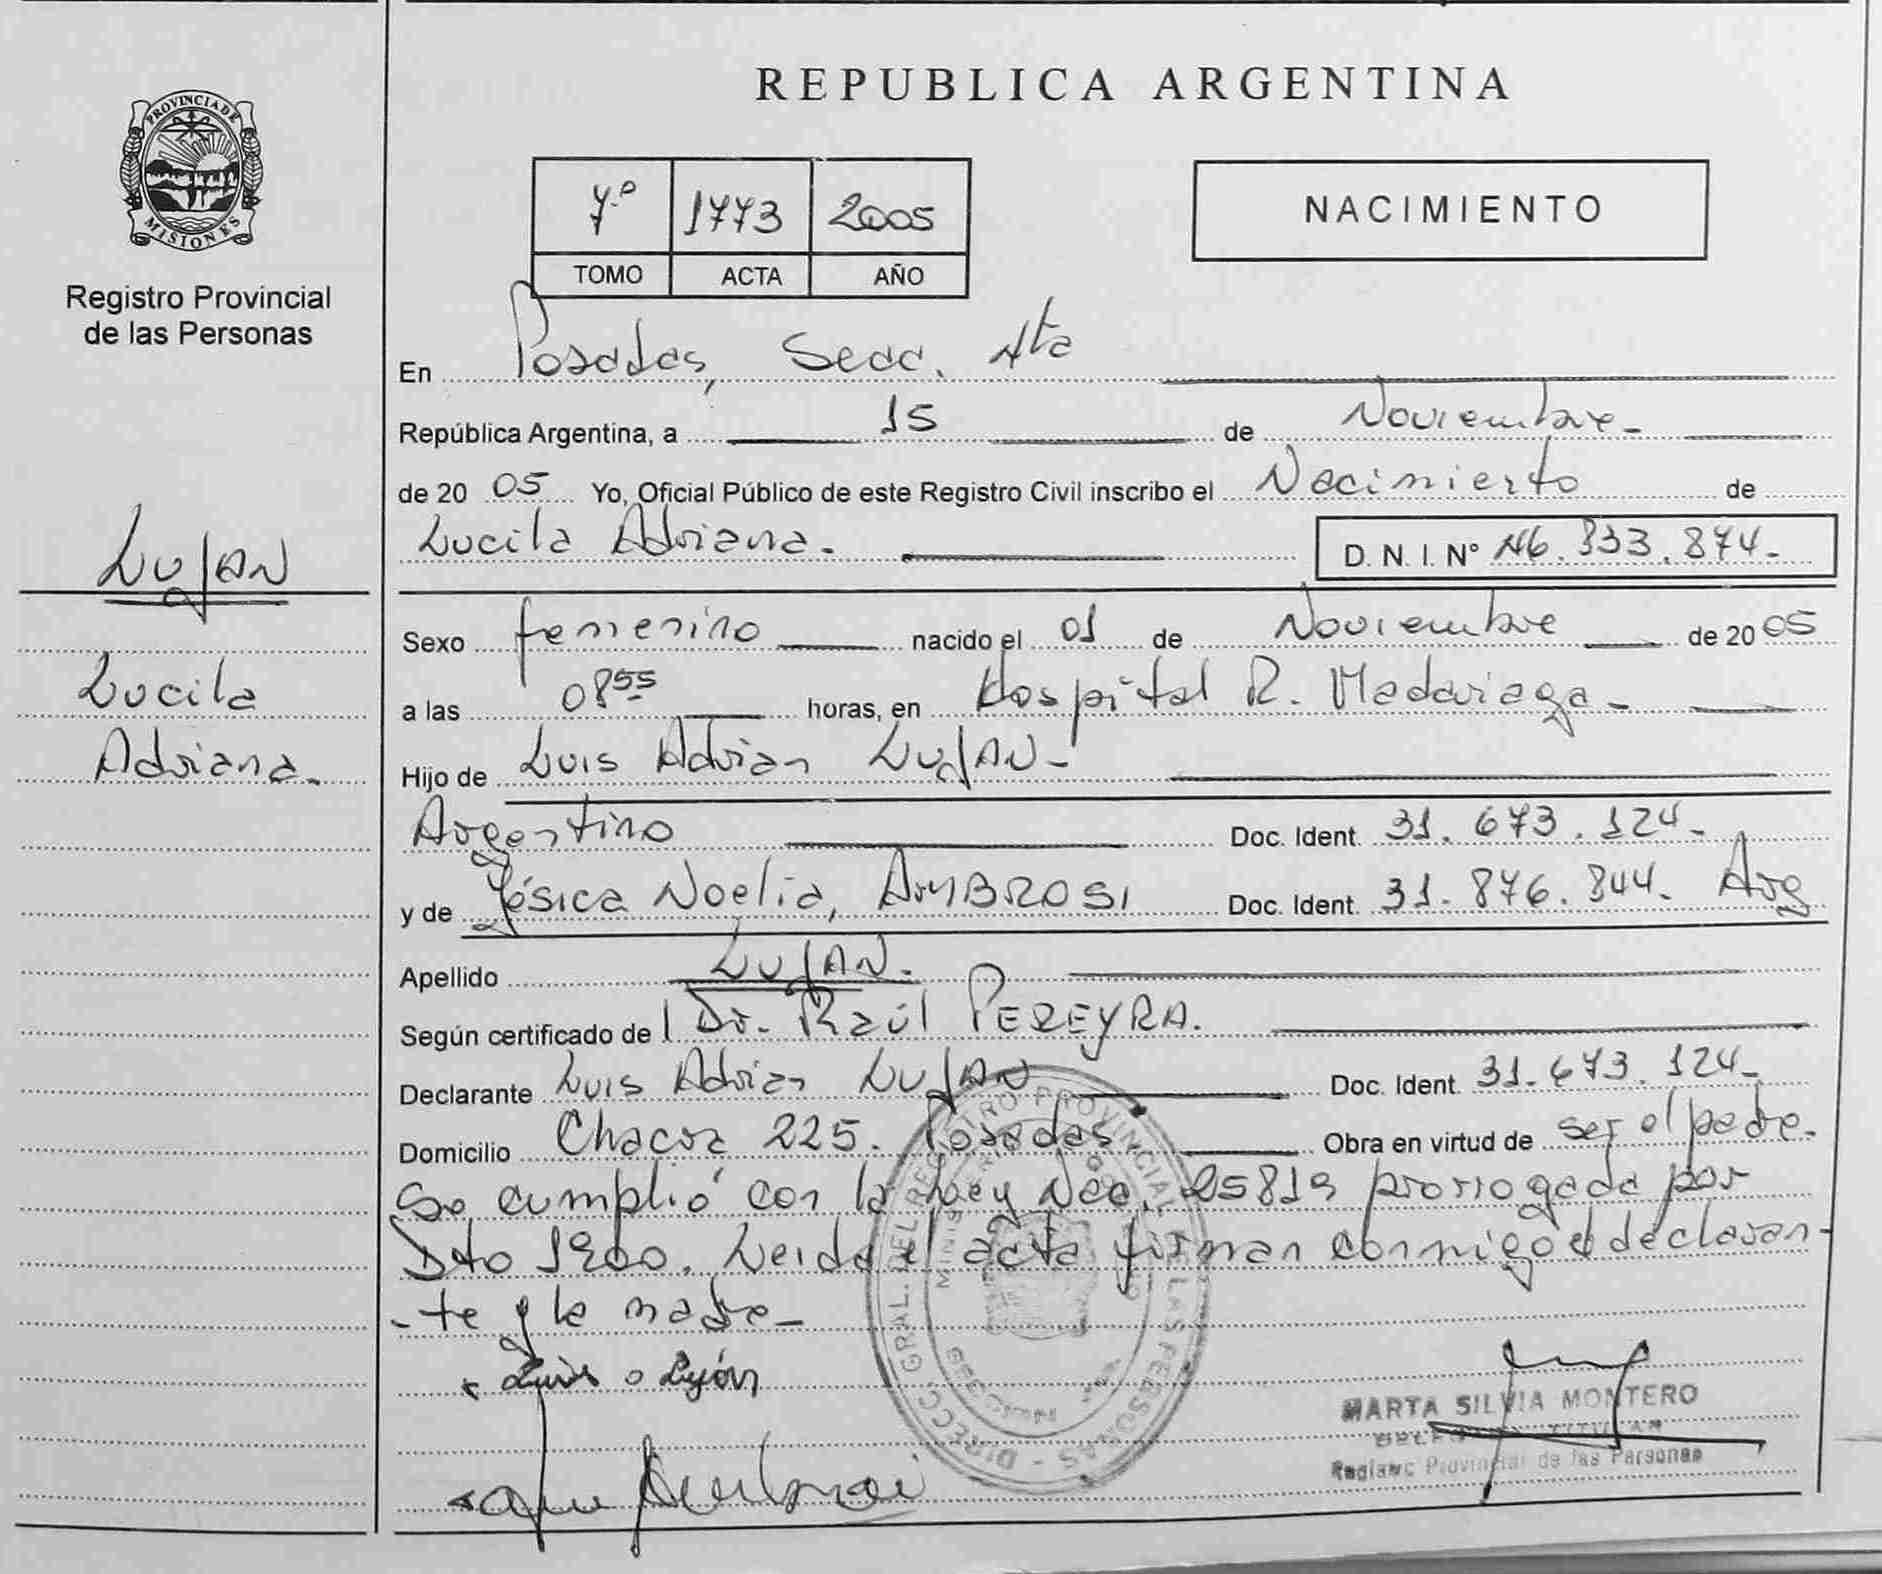 REPUBLICA ARGENTINA
PROVINCIA DE
MISIONES
Registro Provincial
de las Personas
7º 1773 2005
TOMO ACTA AÑO
NACIMIENTO
En Posadas, Secc. 4ta
República Argentina, a 15 de Noviembre-
de 20 05 Yo, Oficial Público de este Registro Civil inscribo el Nacimiento de
Lucila Adriana. D. N. I. Nº 46.333.874-
LUJAN
Lucila
Adriana.
Sexo femenino nacido el 01 de Noviembre de 20 05
a las 08 55 horas, en Hospital R. Madariaga-
Hijo de Luis Adrian LUJAN-
Argentino Doc. Ident. 31.673.124-
y de Yésica Noelia, AMBROSI Doc. Ident. 31.876.344- Arg
Apellido LUJAN.
Según certificado de Dr. Raúl PEREYRA.
Declarante Luis Adrian LUJAN Doc. Ident. 31.673.124-
Domicilio Chacra 225. Posadas Obra en virtud de ser el padre.
Se cumplió con la Ley Nac. 25819 prorrogada por
Dto 1900. Leida el acta firman conmigo el declaran-
-te y la madre-
Luis Luján
DIRECC. GRAL. DEL REGISTRO PROVINCIAL DE LAS PERSONAS -
MARTA SILVIA MONTERO
Provincial de las Personas